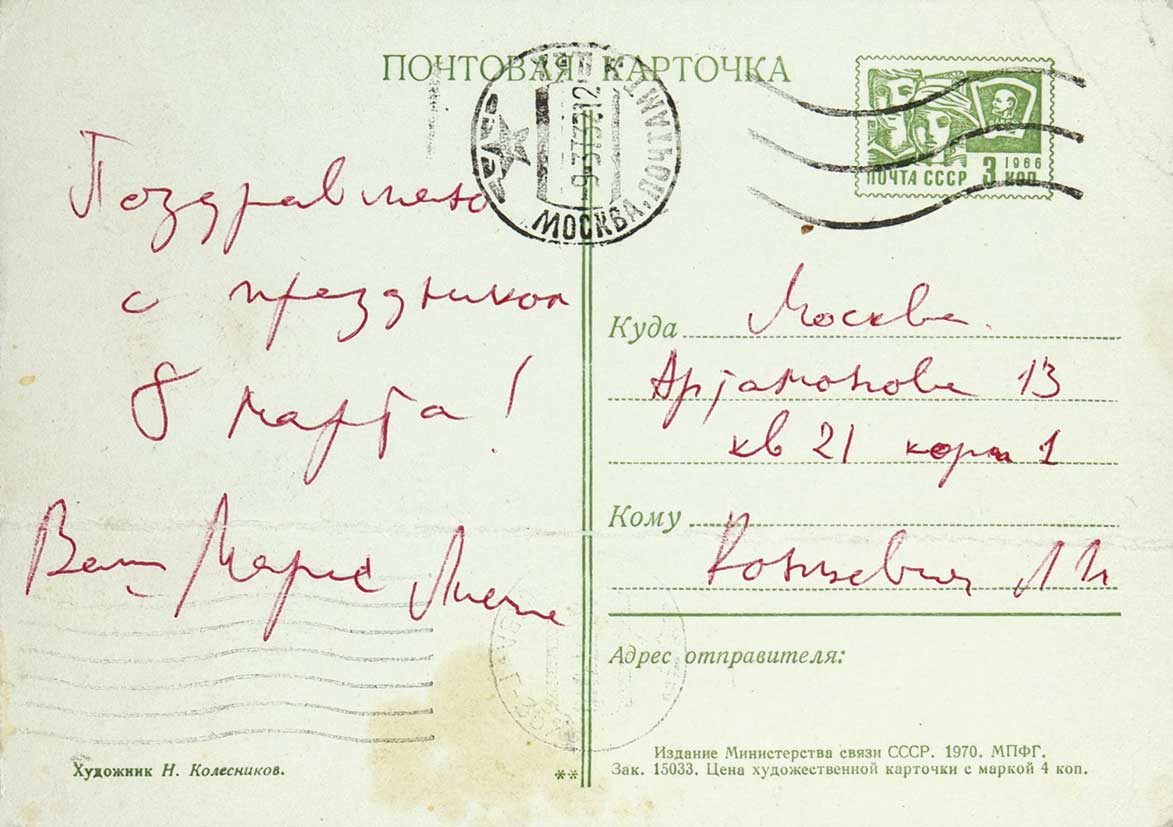 ПОЧТОВАЯ КАРТОЧКА
МОСКВА, ПОЧТАМТ
ПОЧТА СССР 3 КОП
1966
Поздравляю
с праздником
8 марта!
Ваш Марис Лиепа
Куда Москва.
Артамонова 13
кв 21 корп 1
Кому
Л И
Адрес отправителя:
Художник Н. Колесников.
**
Издание Министерства связи СССР. 1970. МПФГ.
Зак. 15033. Цена художественной карточки с маркой 4 коп.